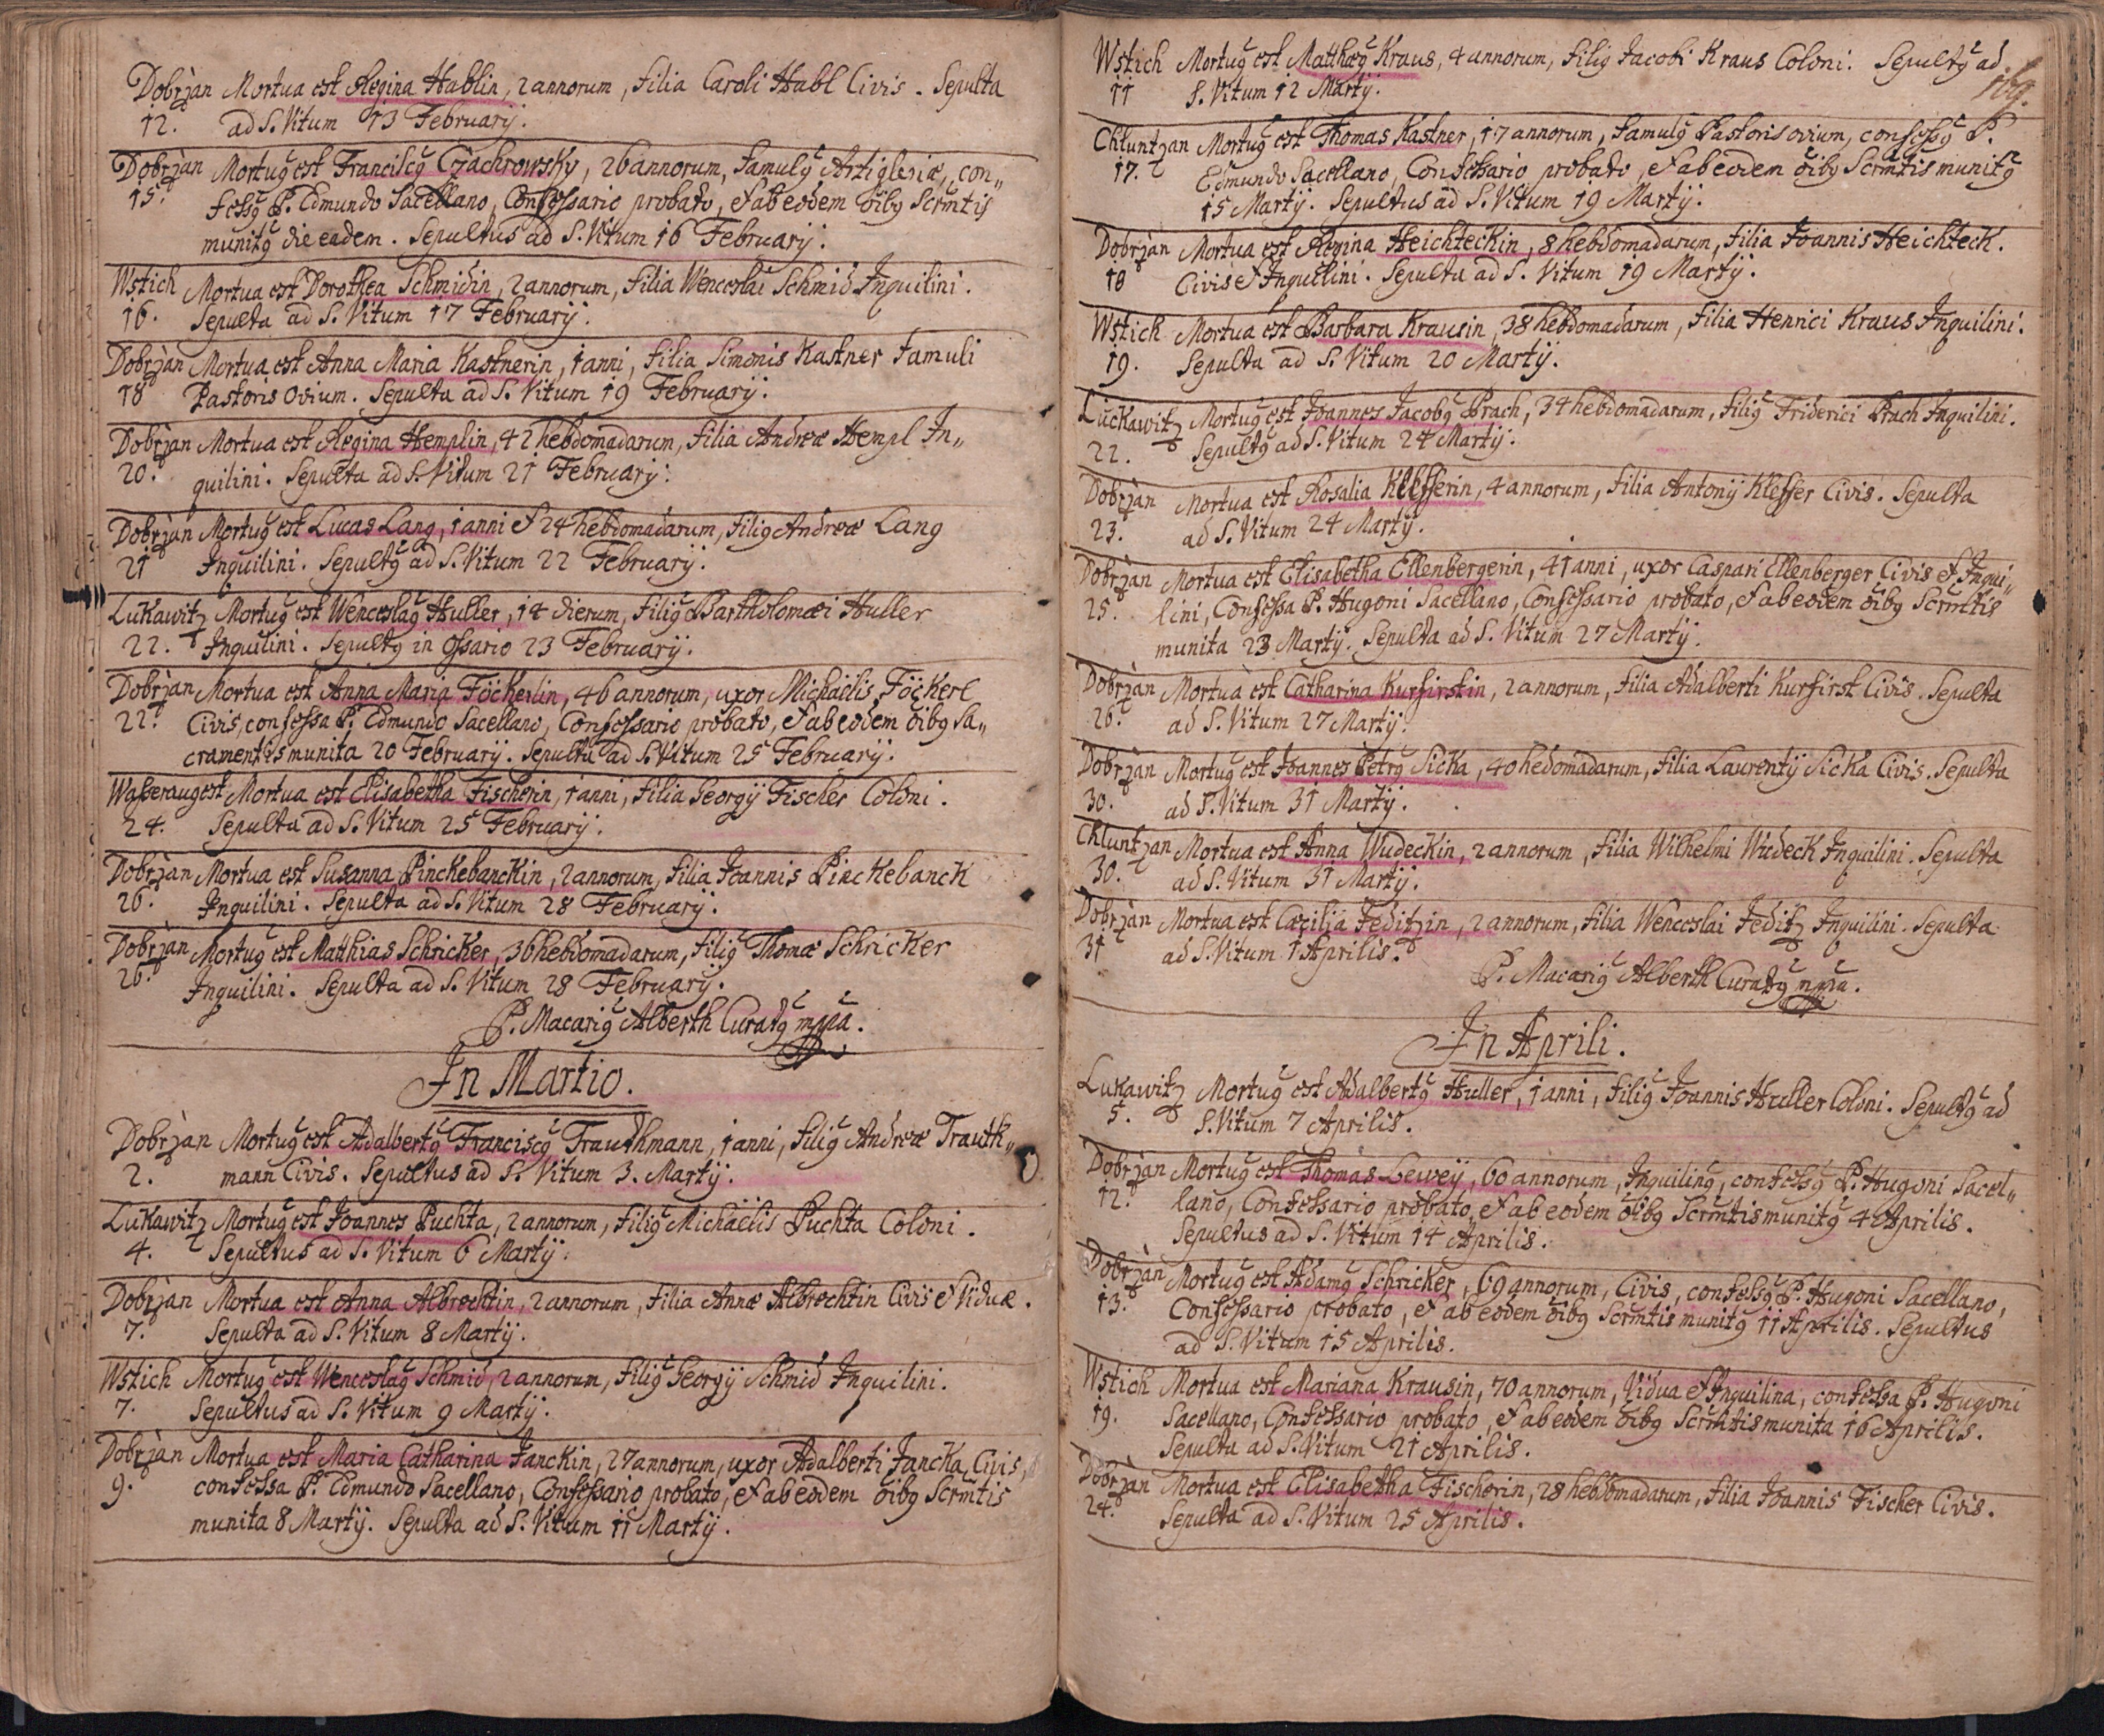 Dobrzan Mortua est Regina Hablin, 2 annorum, Filia Caroli Habl Civis. Sepulta
12. ad S. Vitum 13 Februarij.
Dobrzan Mortuꝯ est Franciscꝯ Czachrowsky, 26 annorum, Famulꝯ Artigleriæ, con„
15. fessꝯ P. Edmundo Sacellano, Confessario probato, et ab eodem oibꝯ Scrmtis
munitꝯ die eadem. Sepultus ad S. Vitum 16 Februarij.
Wstich Mortua est Dorothea Schmidin, 2 annorum, Filia Wenceslai Schmid Inquilini.
16. Sepulta ad S. Vitum 17 Februarij.
Dobrzan Mortua est Anna Maria Kastnerin, 1 anni, Filia Simonis Kastner Famuli
18 Pastoris Ovium. Sepulta ad S. Vitum 19 Februarij.
Dobrzan Mortua est Regina Hemplin, 42 hebdomadarum, Filia Andreæ Hempl In„
20. quilini. Sepulta ad S. Vitum 21 Februarij.
Dobrzan Mortuꝯ est Lucas Lang, 1 anni et 24 hebdomadarum, Filiꝯ Andreæ Lang
21 Inquilini. Sepultꝯ ad S. Vitum 22 Februarij.
Lukawitz Mortuꝯ est Wenceslaꝯ Huller, 14 dierum, Filiꝯ Bartholomæi Huller
22. Inquilini. Sepultꝯ in Ossario 23 Februarij.
Dobrzan Mortua est Anna Maria Föckerlin, 46 annorum, uxor Michaëlis Föckerl
22. Civis, confessa P. Edmundo Sacellano, Confessario probato, et ab eodem oibꝯ Sa„
cramentis munita 20 Februarij. Sepulta ad S. Vitum 25 Februarij.
Wasseraugest Mortua est Elisabetha Fischerin, 1 anni, Filia Georgij Fischer Coloni.
24. Sepulta ad S. Vitum 25 Februarij.
Dobrzan Mortua est Susanna Pinckebanckin, 2 annorum, Filia Joannis Pinckebanck
26. Inquilini. Sepulta ad S. Vitum 28 Februarij.
Dobrzan Mortuꝯ est Matthias Schricker, 36 hebdomadarum, Filiꝯ Thomæ Schricker
26. Inquilini. Sepulta ad S. Vitum 28 Februarij.
P. Macariꝯ Alberth Curatꝯ mpia.
In Martio.
Dobrzan Mortuꝯ est Adalbertꝯ Franciscꝯ Trauthmann, 1 anni, Filiꝯ Andreæ Trauth„
2. mann Civis. Sepultus ad S. Vitum 3. Martij.
Lukawitz Mortuꝯ est Joannes Puchta, 2 annorum, Filiꝯ Michaëlis Puchta Coloni.
4. Sepultus ad S. Vitum 6 Martij.
Dobrzan Mortua est Anna Albrechtin, 2 annorum, Filia Annæ Albrechtin Civis et Viduæ.
7. Sepulta ad S. Vitum 8 Martij.
Wstich Mortuꝯ est Wenceslaꝯ Schmid, 2 annorum, Filiꝯ Georgij Schmid Inquilini.
7. Sepultus ad S. Vitum 9 Martij.
Dobrzan Mortua est Maria Catharina Janckin, 27 annorum, uxor Adalberti Jancka, Civis,
9. confessa P. Edmundo Sacellano, Confessario probato, et ab eodem oibꝯ Scrmtis
munita 8 Martij. Sepulta ad S. Vitum 11 Martij.
Wstich Mortuꝯ est Matthæꝯ Kraus, 4 annorum, Filiꝯ Jacobi Kraus Coloni. Sepultꝯ ad
11 S. Vitum 12 Martij.
Chluntzan Mortuꝯ est Thomas Kastner, 17 annorum, Famulꝯ Pastoris ovium, confessꝯ P.
17. Edmundo Sacellano, Confessario probato, et ab eodem oibꝯ Scrmtis munitꝯ
15 Martij. Sepultus ad S. Vitum 19 Martij.
Dobrzan Mortua est Regina Heichteckin, 8 hebdomadarum, Filia Joannis Heichteck.
18 Civis et Inquilini. Sepulta ad S. Vitum 19 Martij.
Wstich Mortua est Barbara Krausin, 38 hebdomadarum, Filia Henrici Kraus Inquilini.
19. Sepulta ad S. Vitum 20 Martij.
Luckawitz Mortuꝯ est Joannes Jacobꝯ Prach, 34 hebdomadarum, Filiꝯ Friderici Prach Inquilini.
22. Sepultꝯ ad S. Vitum 24 Martij.
Dobrzan Mortua est Rosalia Klesserin, 4 annorum, Filia Antonij Klesser Civis. Sepulta
23. ad S. Vitum 24 Martij.
Dobrzan Mortua est Elisabetha Ellenbergerin, 41 anni, uxor Caspari Ellenberger Civis et Inqui„
25. lini, Confessa P. Hugoni Sacellano, Confessario probato, et ab eodem oibꝯ Scrmtis
munita 23 Martij. Sepulta ad S. Vitum 27 Martij.
Dobrzan Mortua est Catharina Kurfirstin, 2 annorum, Filia Adalberti Kurfirst Civis. Sepulta
26. ad S. Vitum 27 Martij.
Dobrzan Mortuꝯ est Joannes Petrꝯ Sicka, 40 hebdomadarum, Filia Laurentij Sicka Civis. Sepulta
30. ad S. Vitum 31 Martij.
Chluntzan Mortua est Anna Wudeckin, 2 annorum, Filia Wilhelmi Wudeck Inquilini. Sepulta
30. ad S. Vitum 31 Martij.
Dobrzan Mortua est Cæcilia Feditzin, 2 annorum, Filia Wenceslai Feditz Inquilini. Sepulta
31 ad S. Vitum 1 Aprilis.
P. Macariꝯ Alberth Curatꝯ mpia.
In Aprili.
Lukawitz Mortuꝯ est Adalbertꝯ Huller, 1 anni, Filiꝯ Joannis Huller Coloni. Sepultꝯ ad
5. S. Vitum 7 Aprilis.
Dobrzan Mortuꝯ est Thomas Lewey, 60 annorum, Inquilinꝯ, confessꝯ P. Hugoni Sacel„
12. lano, Confessario probato, et ab eodem oibꝯ Scrmtis munitꝯ 4 Aprilis.
Sepultus ad S. Vitum 14 Aprilis.
Dobrzan Mortuꝯ est Adamꝯ Schricker, 69 annorum, Civis, confessꝯ P. Hugoni Sacellano,
13. Confessario probato, et ab eodem oibꝯ Scrmtis munitꝯ 11 Aprilis. Sepultus
ad S. Vitum 15 Aprilis.
Wstich Mortua est Mariana Krausin, 70 annorum, Vidua et Inquilina, confessa P. Hugoni
19. Sacellano, Confessario probato, et ab eodem oibꝯ Scrmtis munita 16 Aprilis.
Sepulta ad S. Vitum 21 Aprilis.
Dobrzan Mortua est Elisabetha Fischerin, 28 hebdomadarum, Filia Joannis Fischer Civis.
24. Sepulta ad S. Vitum 25 Aprilis.